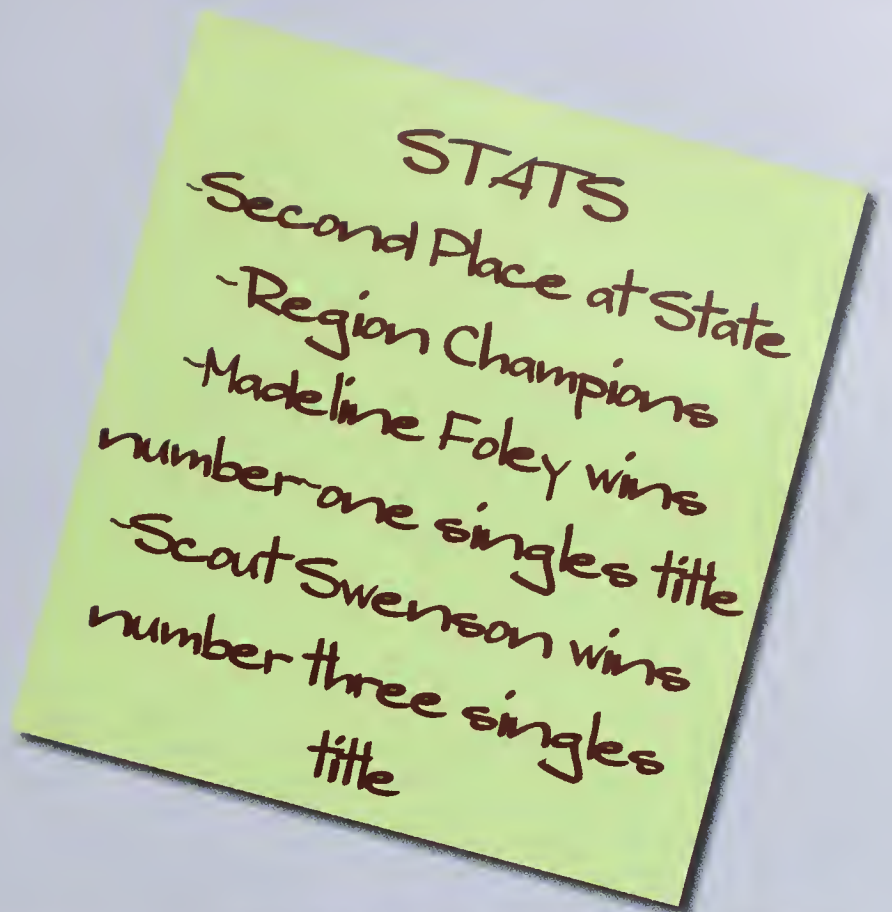 STATS
-Second Place at State
-Region Champions
-Madeline Foley wins
number one singles title
-Scout Swenson wins
number three singles
title